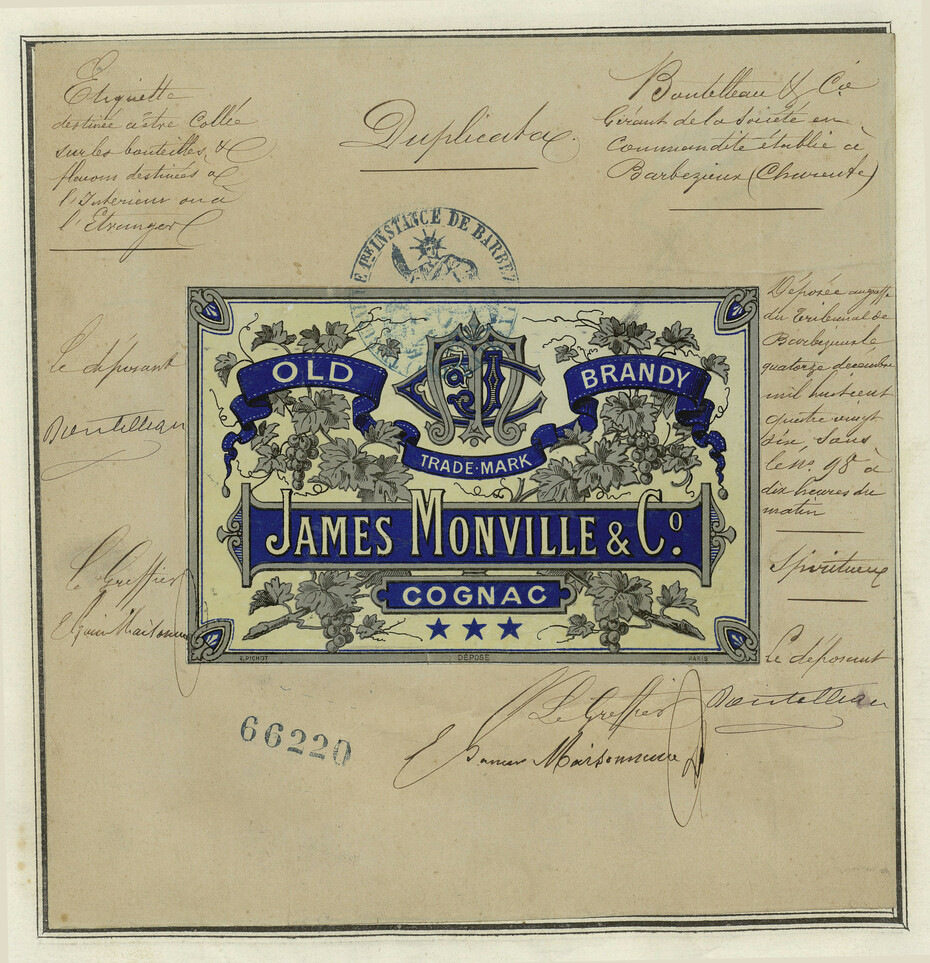 Etiquette
destinée à être Collée
sur les bouteilles, &
flacons destinées à
l'Intérieur ou à
l'Etranger
Duplicata
Boutelleau & Cie
Gérant de la Société en
Commandite établie à
Barbezieux (Charente)
1RE INSTANCE DE BARBEZ
OLD
BRANDY
TRADE-MARK
JAMES MONVILLE & Co.
COGNAC
F. PICHOT
DÉPOSÉ
PARIS
Déposée au greffe
du Tribunal de
Barbezieux le
quatorze décembre
mil huit cent
quatre vingt
six, sous
le no. 98 à
dix heures du
matin
Spiritueux
le déposant
Boutelleau
le déposant
Boutelleau
Le Greffier
Maisonneuve
Le Greffier
Maisonneuve
66220